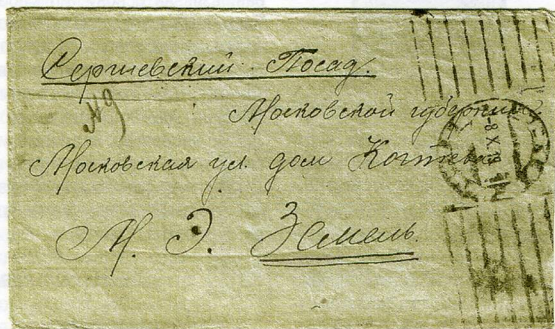 Сергиевский Посад.
Московской губернии
Московская ул. дом
М. Э. Земель.